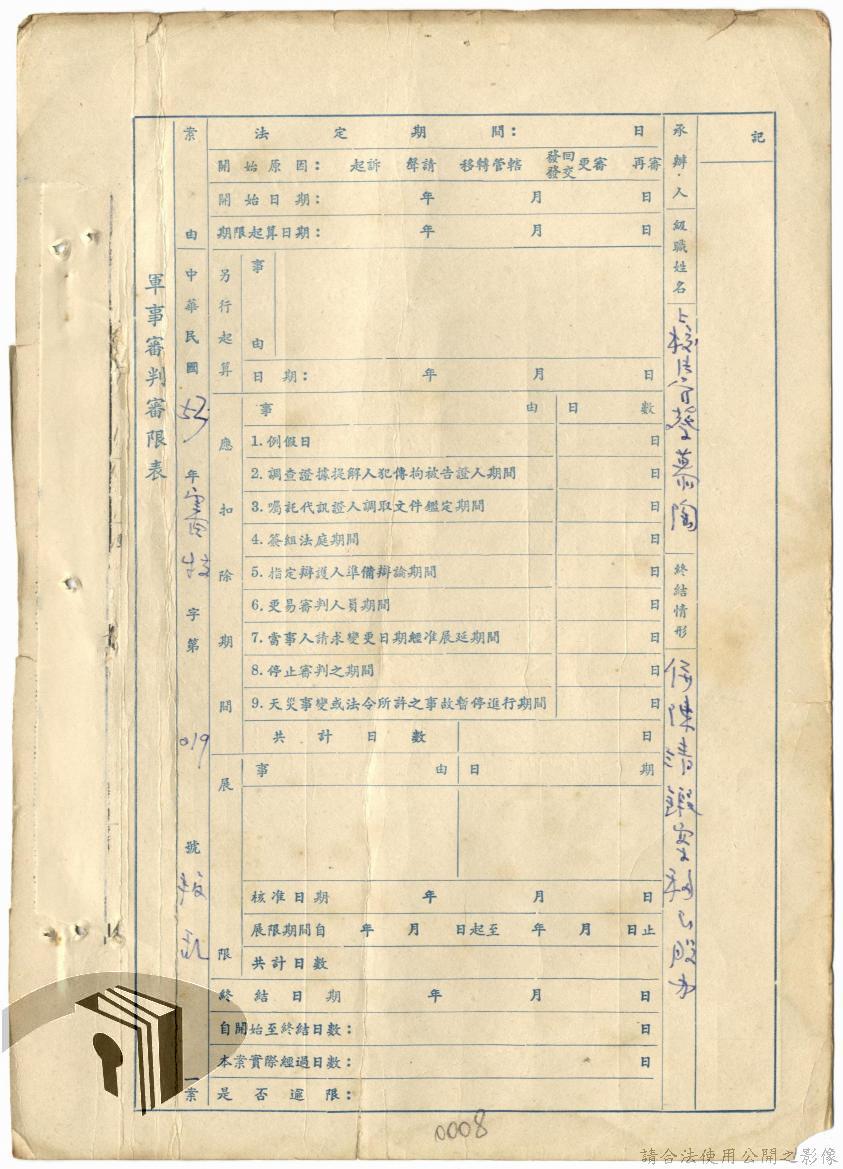 記
承辦人
級職姓名
終結情形
法定期間：日
開始原因：起訴 聲請 移轉管轄 發回發交更審 再審
開始日期：年月日
期限起算日期：年月日
另行起算
事由
日期：年月日
應扣除期間
事由 日數
1.例假日 日
2.調查證據提解人犯傳拘被告證人期間 日
3.囑託代訊證人調取文件鑑定期間 日
4.簽組法庭期間 日
5.指定辯護人準備辯論期間 日
6.更易審判人員期間 日
7.當事人請求變更日期經准展延期間 日
8.停止審判之期間 日
9.天災事變或法令所許之事故暫停進行期間 日
共計日數 日
展限
事由 日期
核准日期 年月日
展限期間自 年月日起至 年月日止
共計日數
終結日期 年月日
自開始至終結日數：日
本案實際經過日數：日
是否逾限：
案由 中華民國 年 字第 019 號 一案
軍事審判審限表
0008
請合法使用公開之影像